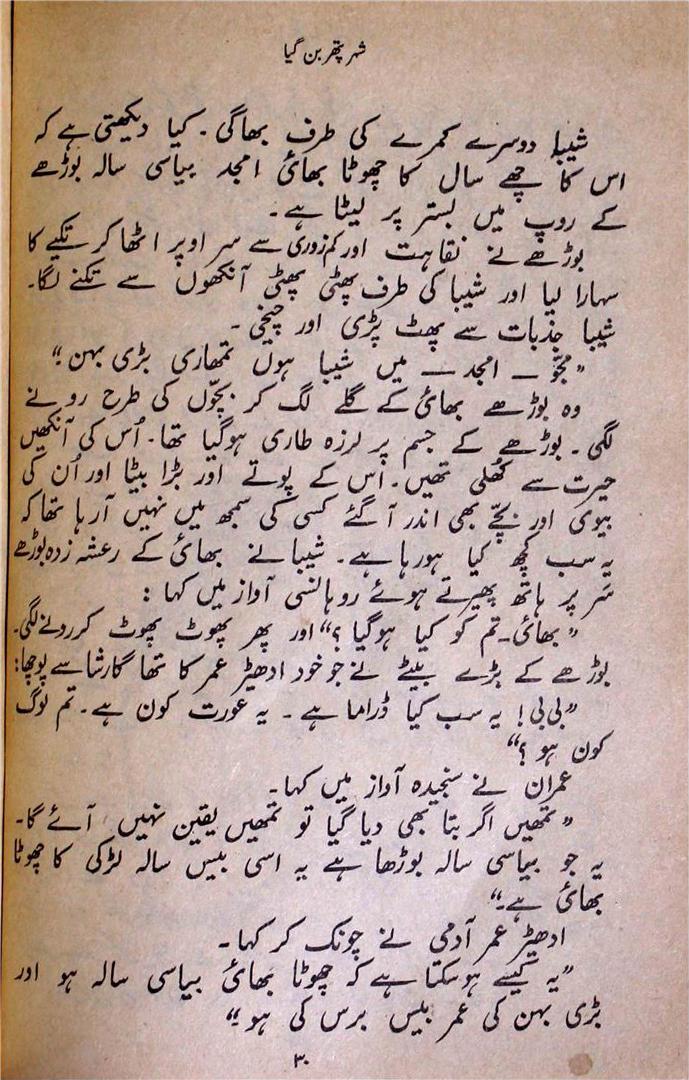 شہر پتھر بن گیا
شیبا دوسرے کمرے کی طرف بھاگی۔ کیا دیکھتی ہے کہ
اس کا چھے سال کا چھوٹا بھائی امجد بیاسی سالہ بوڑھے
کے روپ میں بستر پر لیٹا ہے۔
بوڑھے نے نقاہت اور کم زوری سے سر اوپر اٹھا کر تکیے کا
سہارا لیا اور شیبا کی طرف پھٹی پھٹی آنکھوں سے تکنے لگا۔
شیبا جذبات سے پھٹ پڑی اور چیخی۔
”مجّو — امجد — میں شیبا ہوں تمھاری بڑی بہن“
وہ بوڑھے بھائی کے گلے لگ کر بچّوں کی طرح رونے
لگی۔ بوڑھے کے جسم پر لرزہ طاری ہوگیا تھا۔ اُس کی آنکھیں
حیرت سے کُھلی تھیں۔ اس کے پوتے اور بڑا بیٹا اور اُن کی
بیوی اور بچّے بھی اندر آگئے کسی کی سمجھ میں نہیں آرہا تھا کہ
یہ سب کچھ کیا ہورہا ہے۔ شیبا نے بھائی کے رعشہ زدہ بوڑھے
سَر پر ہاتھ پھیرتے ہوئے روہانسی آواز میں کہا :
”بھائی۔ تم کو کیا ہوگیا ؟“ اور پھر پھوٹ پھوٹ کر رونے لگی۔
بوڑھے کے بڑے بیٹے نے جو خود ادھیڑ عمر کا تھا گارشا سے پوچھا:
”بی بی! یہ سب کیا ڈراما ہے۔ یہ عورت کون ہے۔ تم لوگ
کون ہو ؟“
عمران نے سنجیدہ آواز میں کہا۔
”تمھیں اگر بتا بھی دیا گیا تو تمھیں یقین نہیں آئے گا۔
یہ جو بیاسی سالہ بوڑھا ہے یہ اسی بیس سالہ لڑکی کا چھوٹا
بھائی ہے۔“
ادھیڑ عمر آدمی نے چونک کر کہا۔
”یہ کیسے ہوسکتا ہے کہ چھوٹا بھائی بیاسی سالہ ہو اور
بڑی بہن کی عمر بیس برس کی ہو۔“
۳۰